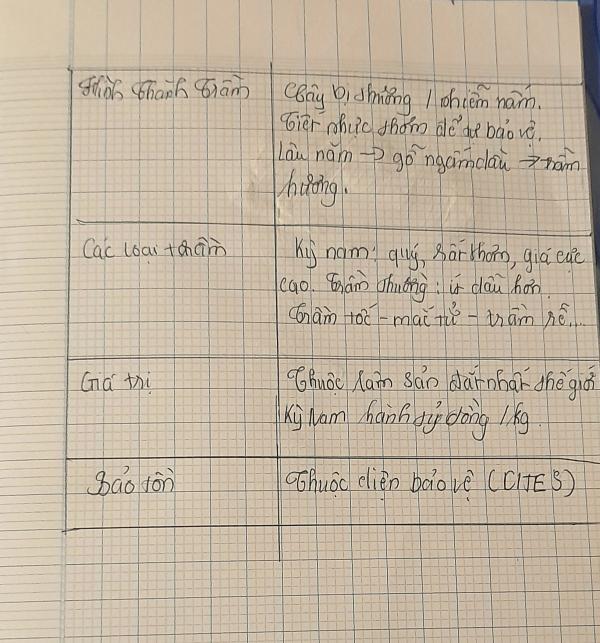 Hình thành trầm
Cây bị thương / nhiễm nấm.
Tiết nhựa thơm để tự bảo vệ.
Lâu năm → gỗ ngấm dầu → trầm
hương.
Các loại trầm
Kỳ nam: quý, rất thơm, giá cực
cao. Trầm thường: ít dầu hơn.
Trầm tốc - mắt tử - trầm rễ...
Giá trị
Thuộc lâm sản đắt nhất thế giới
Kỳ Nam hành tỷ đồng 1 kg.
Bảo tồn
Thuộc diện bảo vệ (CITES)